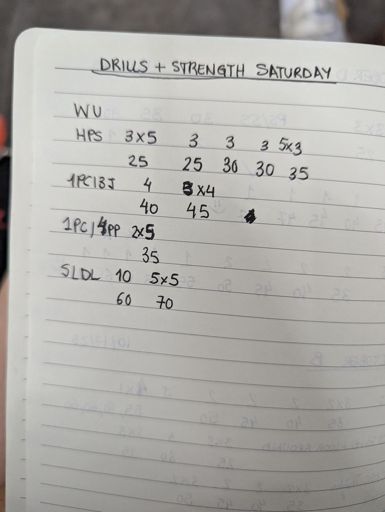 DRILLS + STRENGTH SATURDAY
WU
HPS 3x5 3 3 3 5x3
25 25 30 30 35
1PC/3J 4 3x4
40 45
1PC/4PP 2x5
35
SLDL 10 5x5
60 70